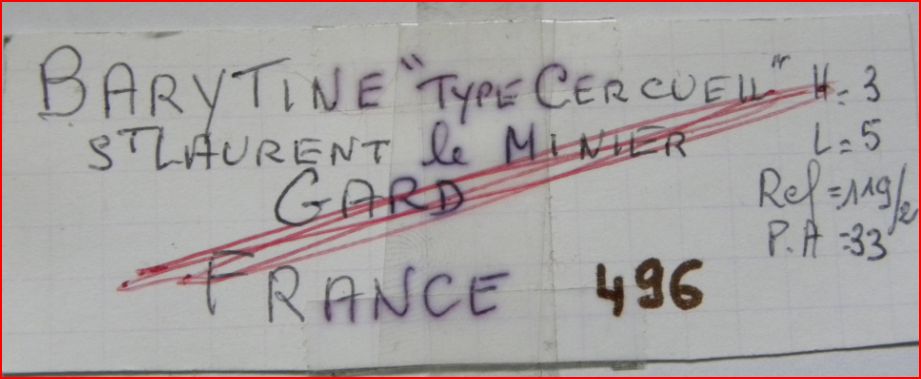 BARYTINE "TYPE CERCUEIL" H=3
ST LAURENT le MINIER L=5
GARD Ref=119/2
P.A=33
FRANCE 496